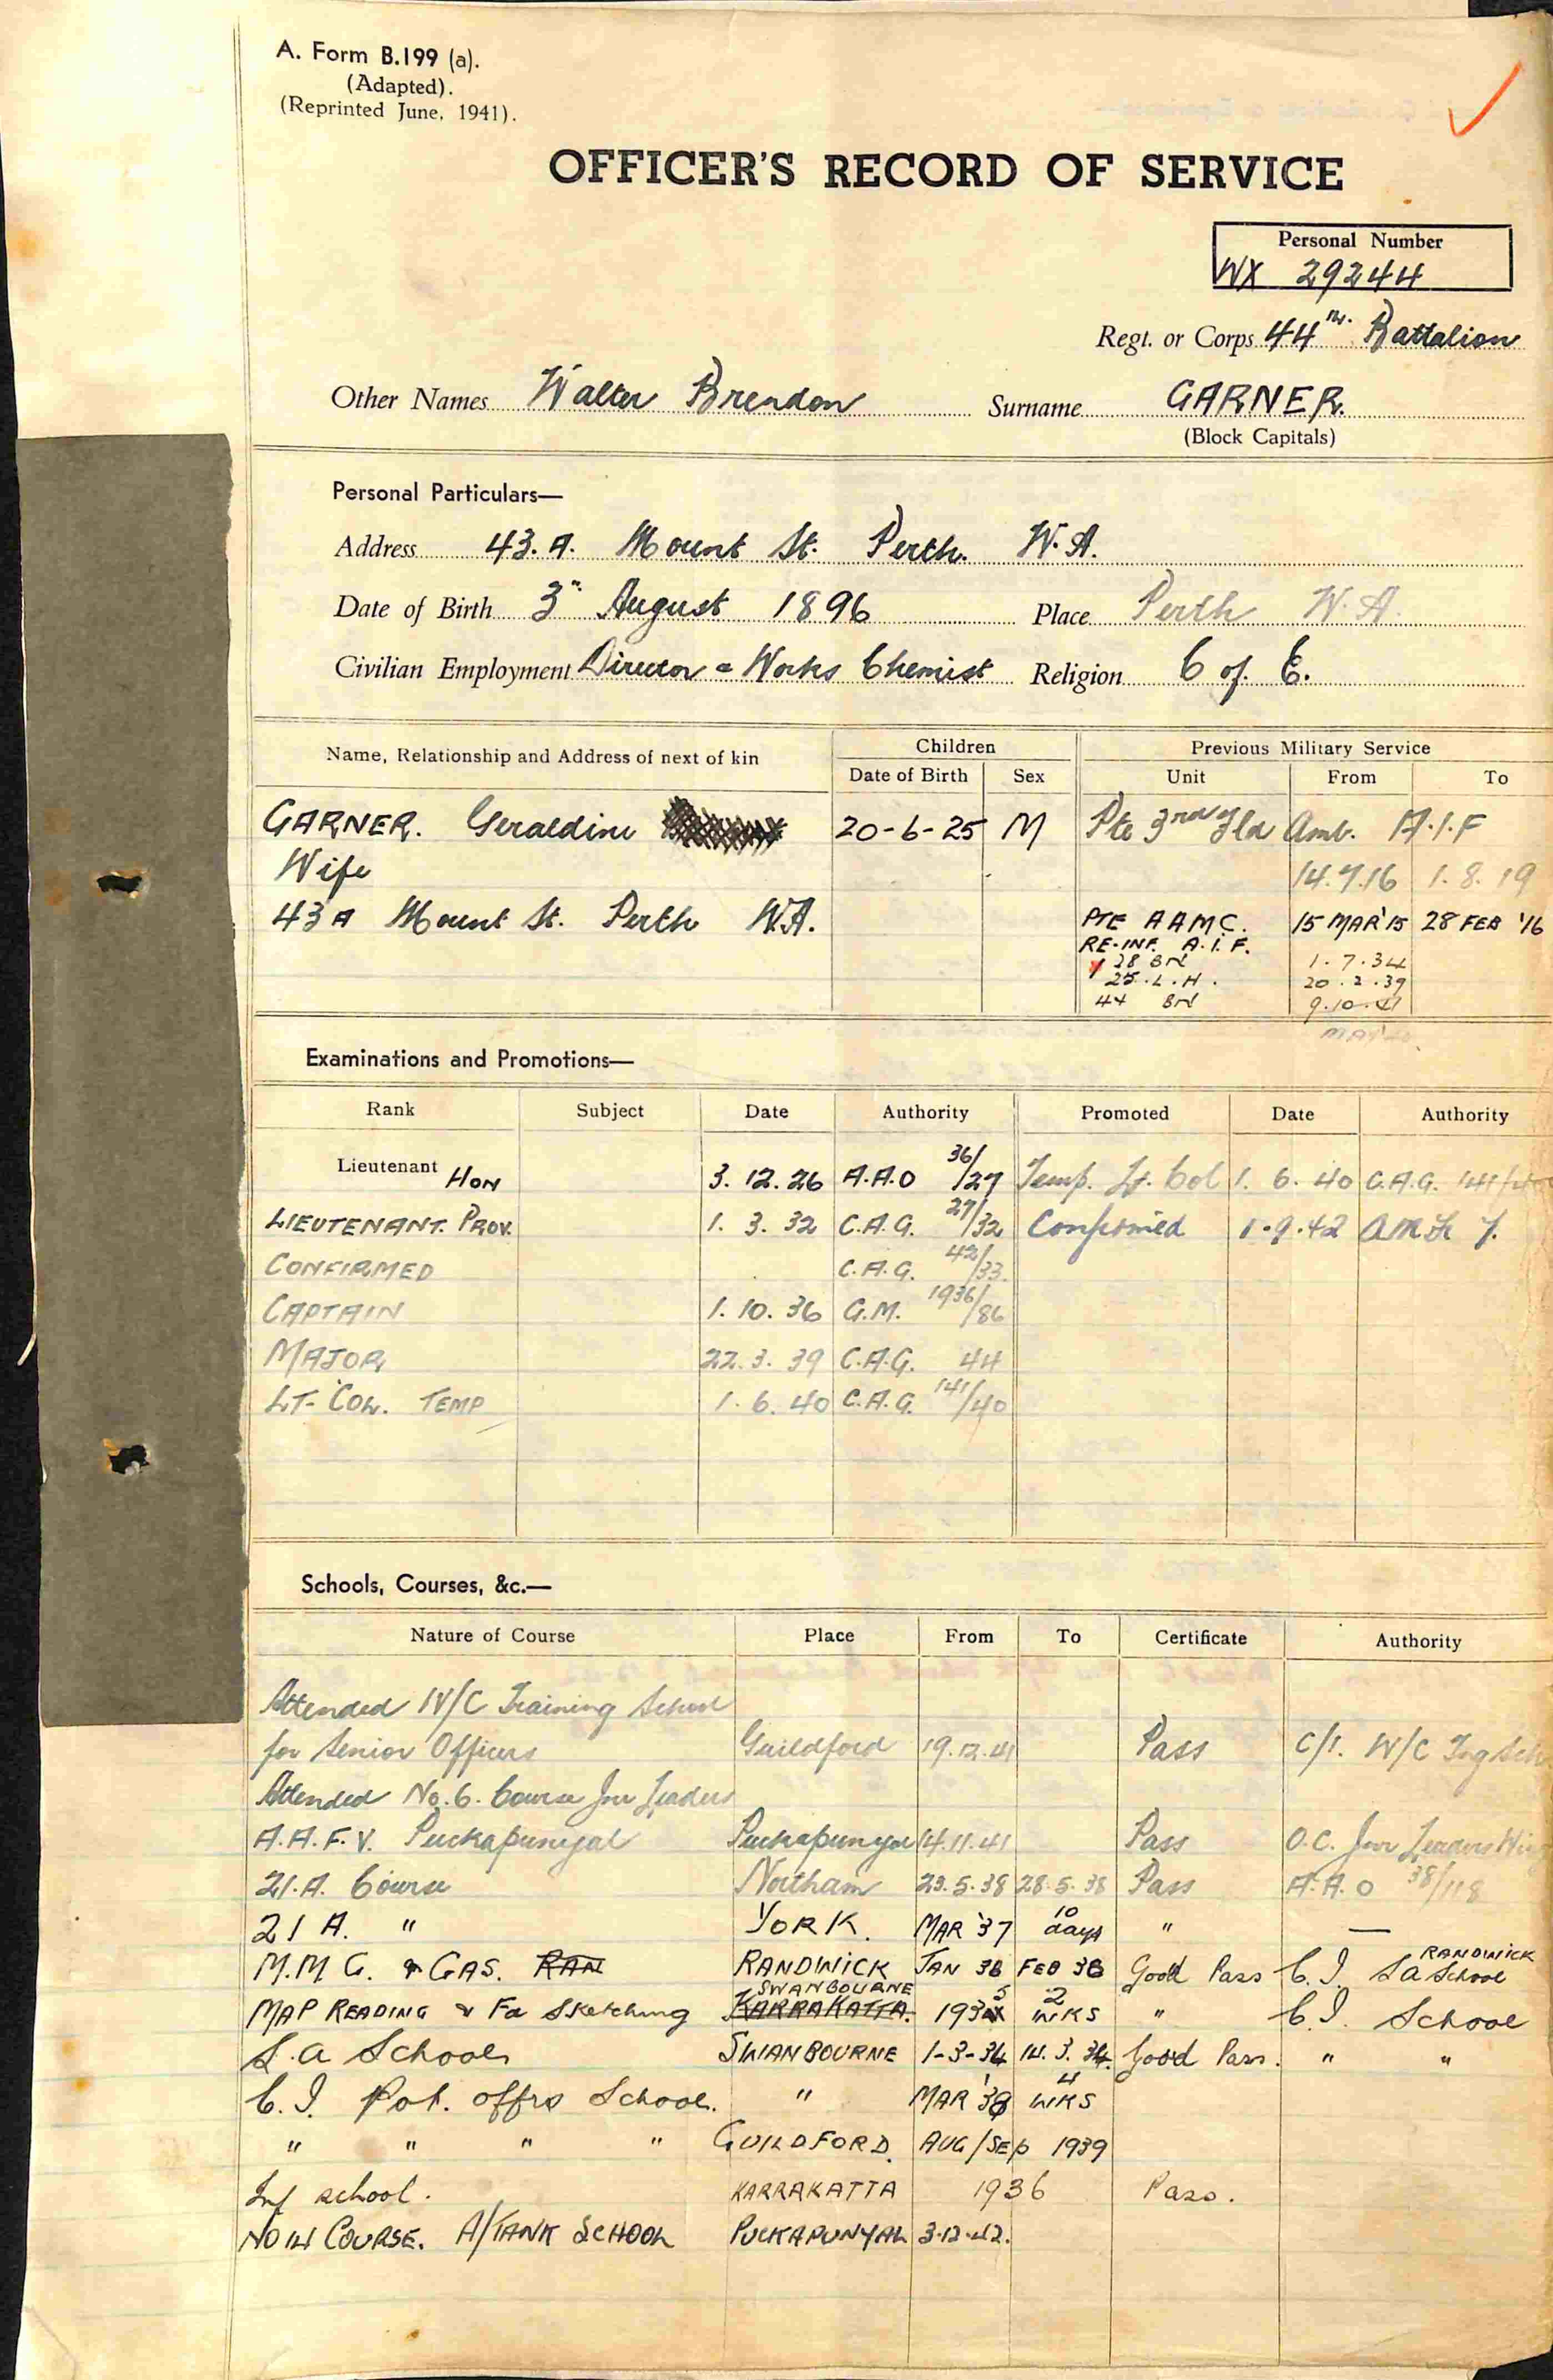 A. Form B.199 (a).
(Adapted).
(Reprinted June, 1941).
OFFICER'S RECORD OF SERVICE
Personal Number
WX 29244
Regt. or Corps 44th Battalion
Other Names Walter Brendon Surname GARNER.
(Block Capitals)
Personal Particulars—
Address 43.A. Mount St. Perth. W.A.
Date of Birth 3rd August 1896 Place Perth W.A.
Civilian Employment Director & Works Chemist Religion C of E.
Name, Relationship and Address of next of kin Children Previous Military Service
Date of Birth Sex Unit From To
GARNER. Geraldine 20-6-25 M Pte 3rd Fld Amb. A.I.F
Wife 14.7.16 1.8.19
43A Mount St. Perth W.A. PTE AAMC. 15 MAR '15 28 FEB '16
RE-INF. A.I.F.
28 BN 1.7.34
25.L.H. 20.2.39
44 BN 9.10.41
Examinations and Promotions—
Rank Subject Date Authority Promoted Date Authority
Lieutenant HON 3.12.26 A.A.O 36/27 Temp. Lt. Col 1.6.40 C.A.G. 141/40
LIEUTENANT. PROV. 1.3.32 C.A.G. 27/32 Confirmed 1.9.42
CONFIRMED C.A.G. 42/33
CAPTAIN 1.10.36 G.M. 1936/86
MAJOR 22.3.39 C.A.G. 44
LT-COL. TEMP 1.6.40 C.A.G. 141/40
Schools, Courses, &c.—
Nature of Course Place From To Certificate Authority
Attended W/C Training School
for Senior Officers Guildford 19.12.41 Pass C/I. W/C Tng Sch
Attended No.6. Course Jnr Leaders
A.A.F.V. Puckapunyal Puckapunyal 14.11.41 Pass O.C. Jnr Leaders Wing
21.A. Course Northam 23.5.38 28.5.38 Pass A.A.O 38/118
21 A. " YORK. MAR '37 10 days " —
M.M G. & GAS. RAN RANDWICK JAN 38 FEB 38 Good Pass C.I. S a School RANDWICK
MAP READING & Fd Sketching KARRAKATTA. SWANBOURNE 1935 2 WKS " C.I. School
S.a School SWANBOURNE 1-3-34 14.3.34. Good Pass. " "
C.I. Pot. offrs School. " MAR '38 4 WKS
" " " " GUILDFORD. AUG/SEP 1939
Inf school. KARRAKATTA 1936 Pass.
NO 14 COURSE. A/TANK SCHOOL PUCKAPUNYAL 3.12.42.